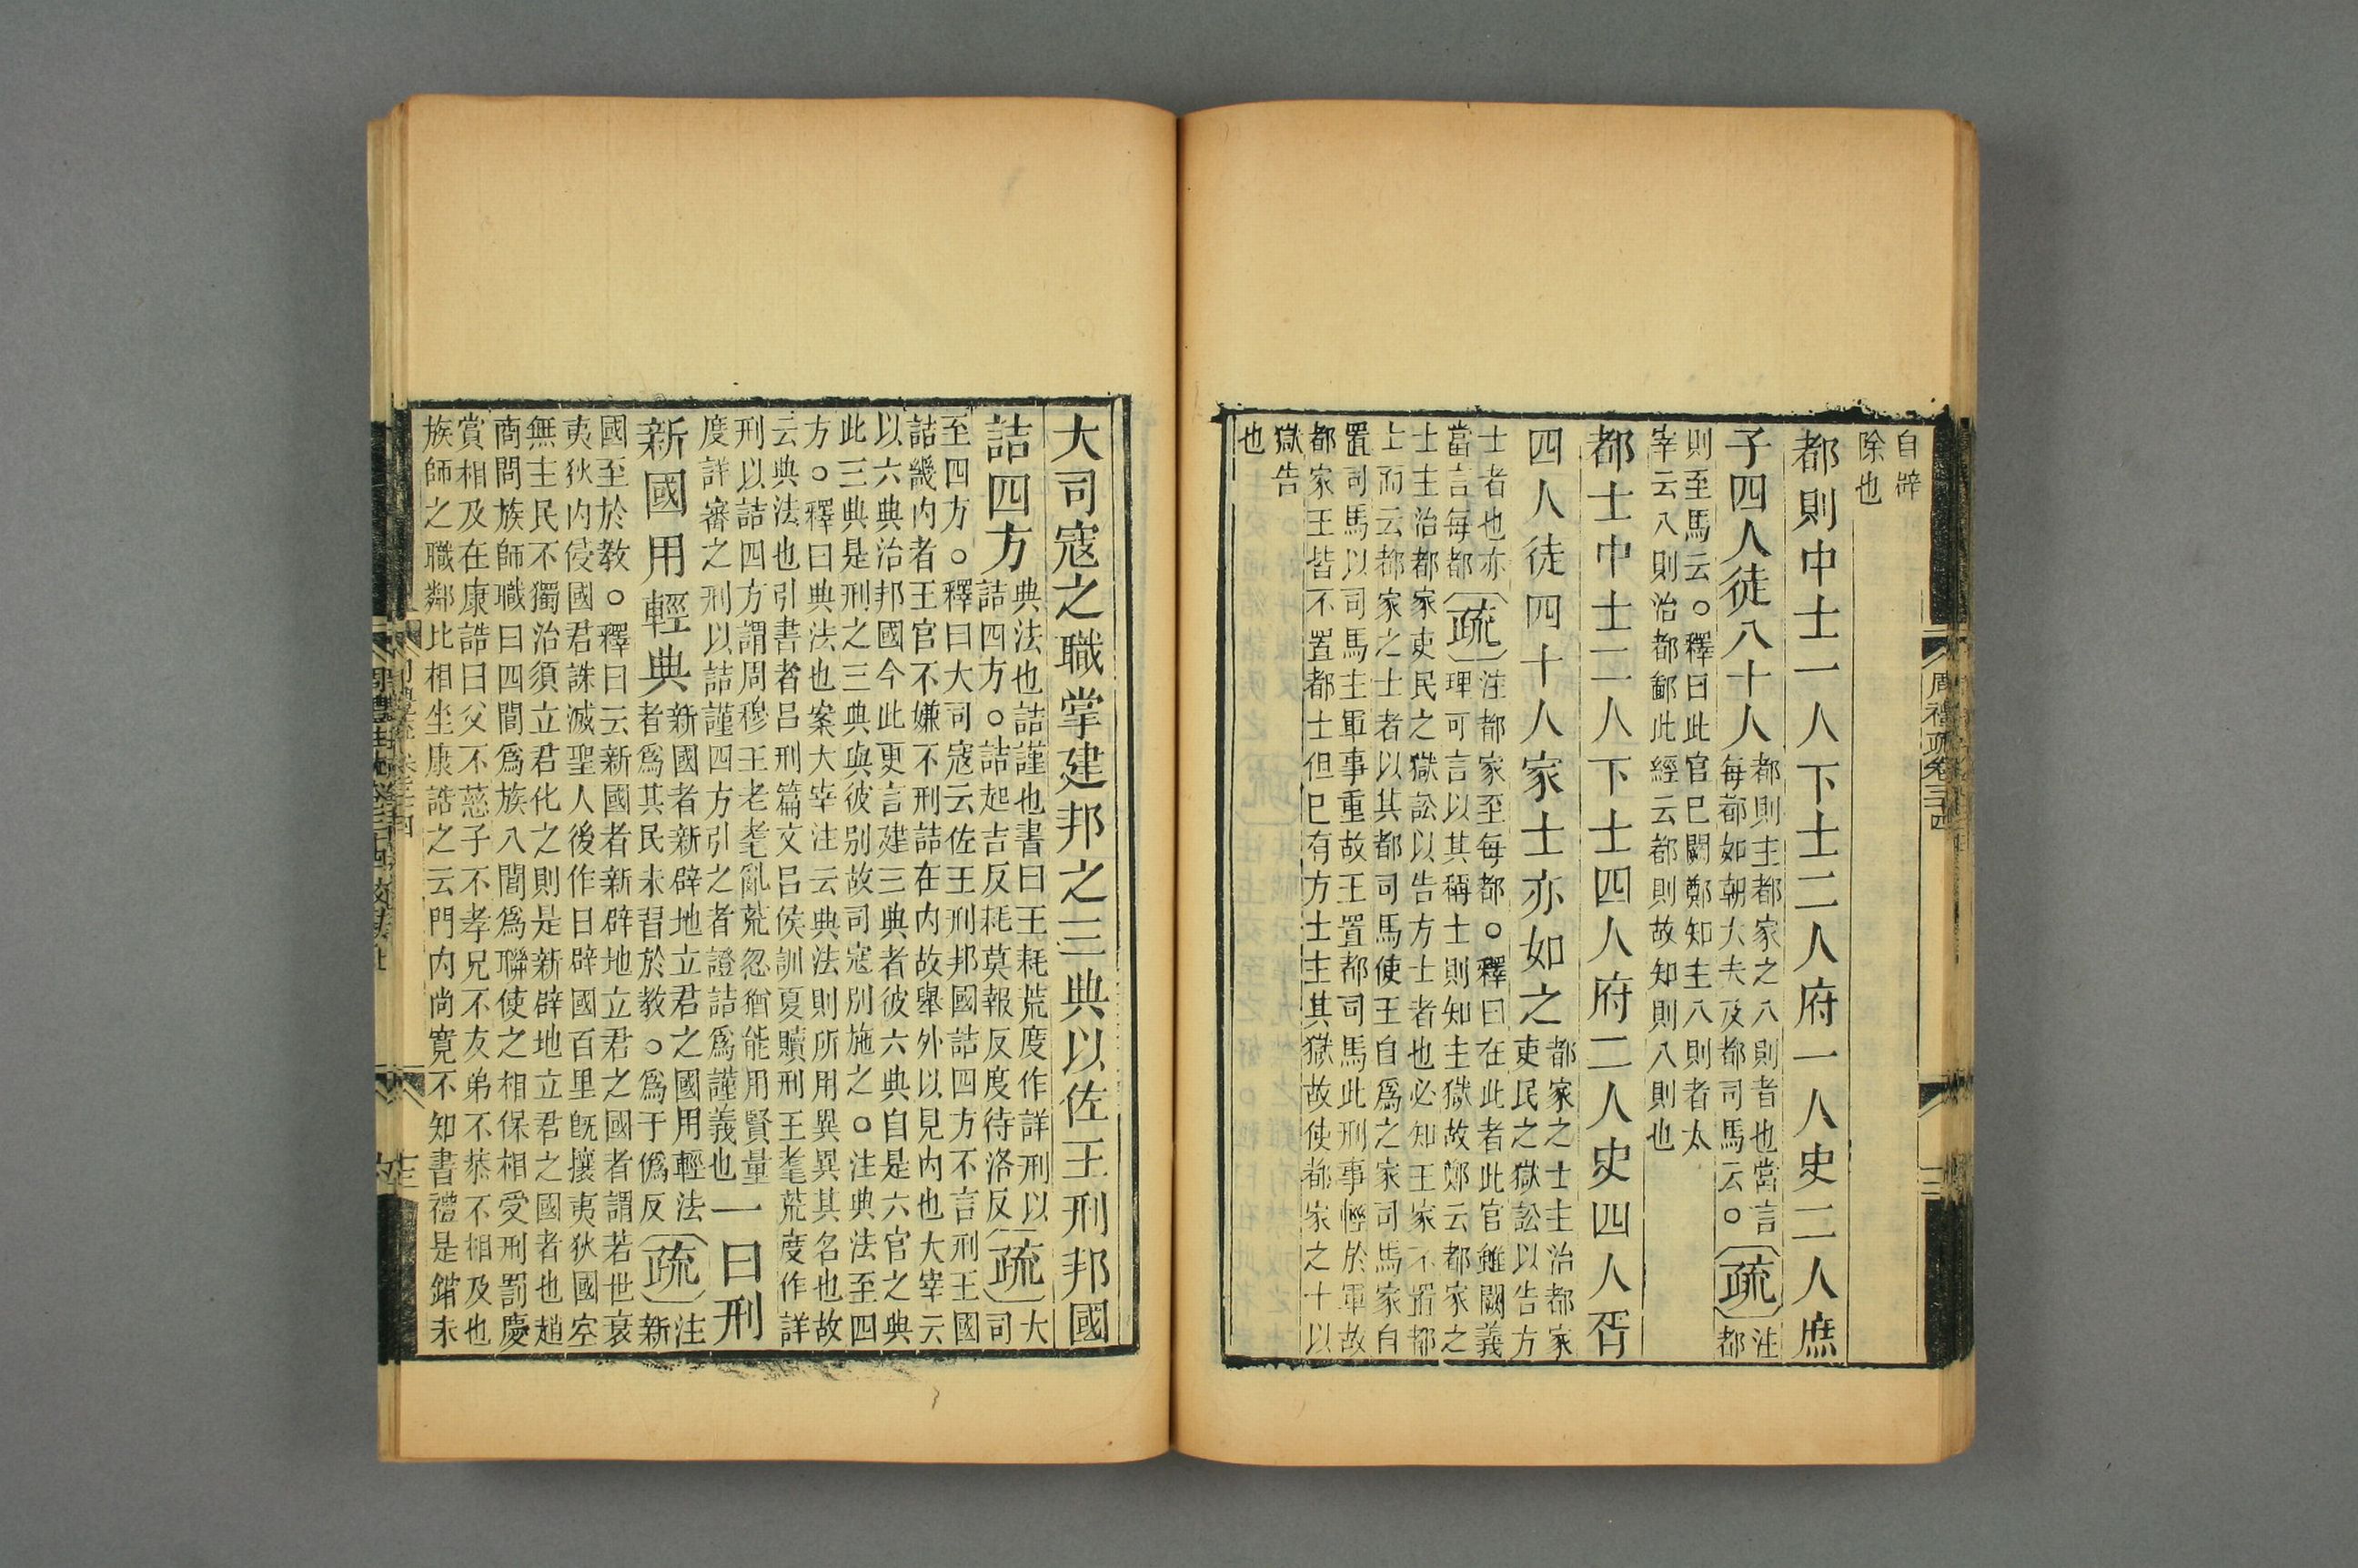 周禮疏卷三十四
自辟
除也
都則中士一人下士二人府一人史二人庶
子四人徒八十人
都則主都家之八則者也當言
每都如朝大夫及都司馬云。
疏
注
都
則至馬云。釋曰此官已闕鄭知主八則者太
宰云八則治都鄙此經云都則故知則八則也
都士中士二人下士四人府二人史四人胥
四人徒四十人家士亦如之
都家之士主治都家
吏民之獄訟以告方
士者也亦
當言每都
疏
注都家至每都。釋曰在此者此官雖闕義
理可言以其稱士則知主獄故鄭云都家之
士主治都家吏民之獄訟以告方士者也必知王家不置都
士而云都家之士者以其都司馬使王自爲之家司馬家自
置司馬以司馬主軍事重故王置都司馬此刑事輕於軍故
都家王皆不置都士但已有方士主其獄故使都家之士以
獄告
也
大司寇之職掌建邦之三典以佐王刑邦國
詰四方
典法也詰謹也書曰王耗荒度作詳刑以
詰四方。詰起吉反耗莫報反度待洛反
疏
大
司
至四方。釋曰大司寇云佐王刑邦國詰四方不言刑王國
詰畿內者王官不嫌不刑詰在內故舉外以見內也大宰云
以六典治邦國今此更言建三典者彼六典自是六官之典
此三典是刑之三典與彼別故司寇別施之。注典法至四
方。釋曰典法也案大宰注云典法則所用異異其名也故
云典法也引書者呂刑篇文呂侯訓夏贖刑王耄荒度作詳
刑以詰四方謂周穆王老耄亂荒忽猶能用賢量
度詳審之刑以詰謹四方引之者證詰爲謹義也
一曰刑
新國用輕典
新國者新辟地立君之國用輕法
者爲其民未習於教。爲于僞反
疏
注
新
國至於教。釋曰云新國者新辟地立君之國者謂若世衰
夷狄內侵國君誅滅聖人後作日辟國百里既攘夷狄國空
無主民不獨治須立君化之則是新辟地立君之國者也趙
商問族師職曰四閭爲族八閭爲聯使之相保相受刑罰慶
賞相及在康誥曰父不慈子不孝兄不友弟不恭不相及也
族師之職鄰比相坐康誥之云門內尚寬不知書禮是錯未